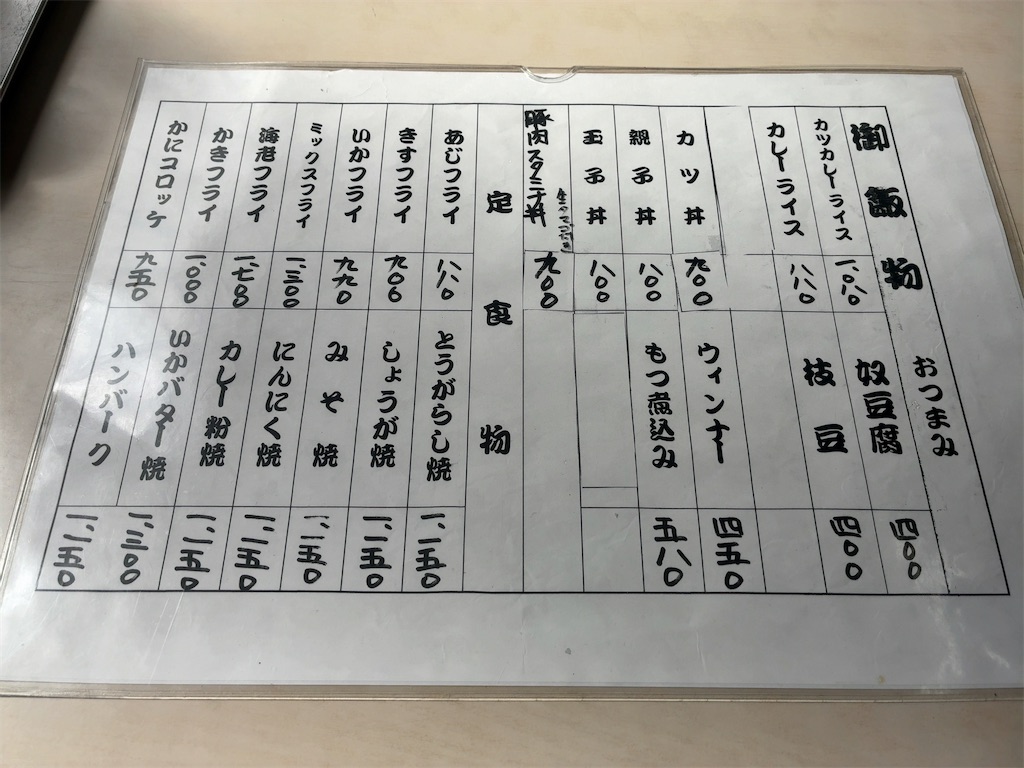 御飯物
カツカレーライス 一、〇八〇
カレーライス 八八〇
カツ丼 九〇〇
親子丼 八〇〇
玉子丼 八〇〇
豚肉スタミナ丼 九〇〇
おつまみ
奴豆腐 四〇〇
枝豆 四〇〇
ウィンナー 四五〇
もつ煮込み 五八〇
定食物
あじフライ 八八〇
きすフライ 九〇〇
いかフライ 九九〇
ミックスフライ 一、三〇〇
海老フライ 一、七〇〇
かきフライ 一、〇〇〇
かにコロッケ 九五〇
とうがらし焼 一、一五〇
しょうが焼 一、一五〇
みそ焼 一、一五〇
にんにく焼 一、一五〇
カレー粉焼 一、一五〇
いかバター焼 一、三〇〇
ハンバーク 一、一五〇